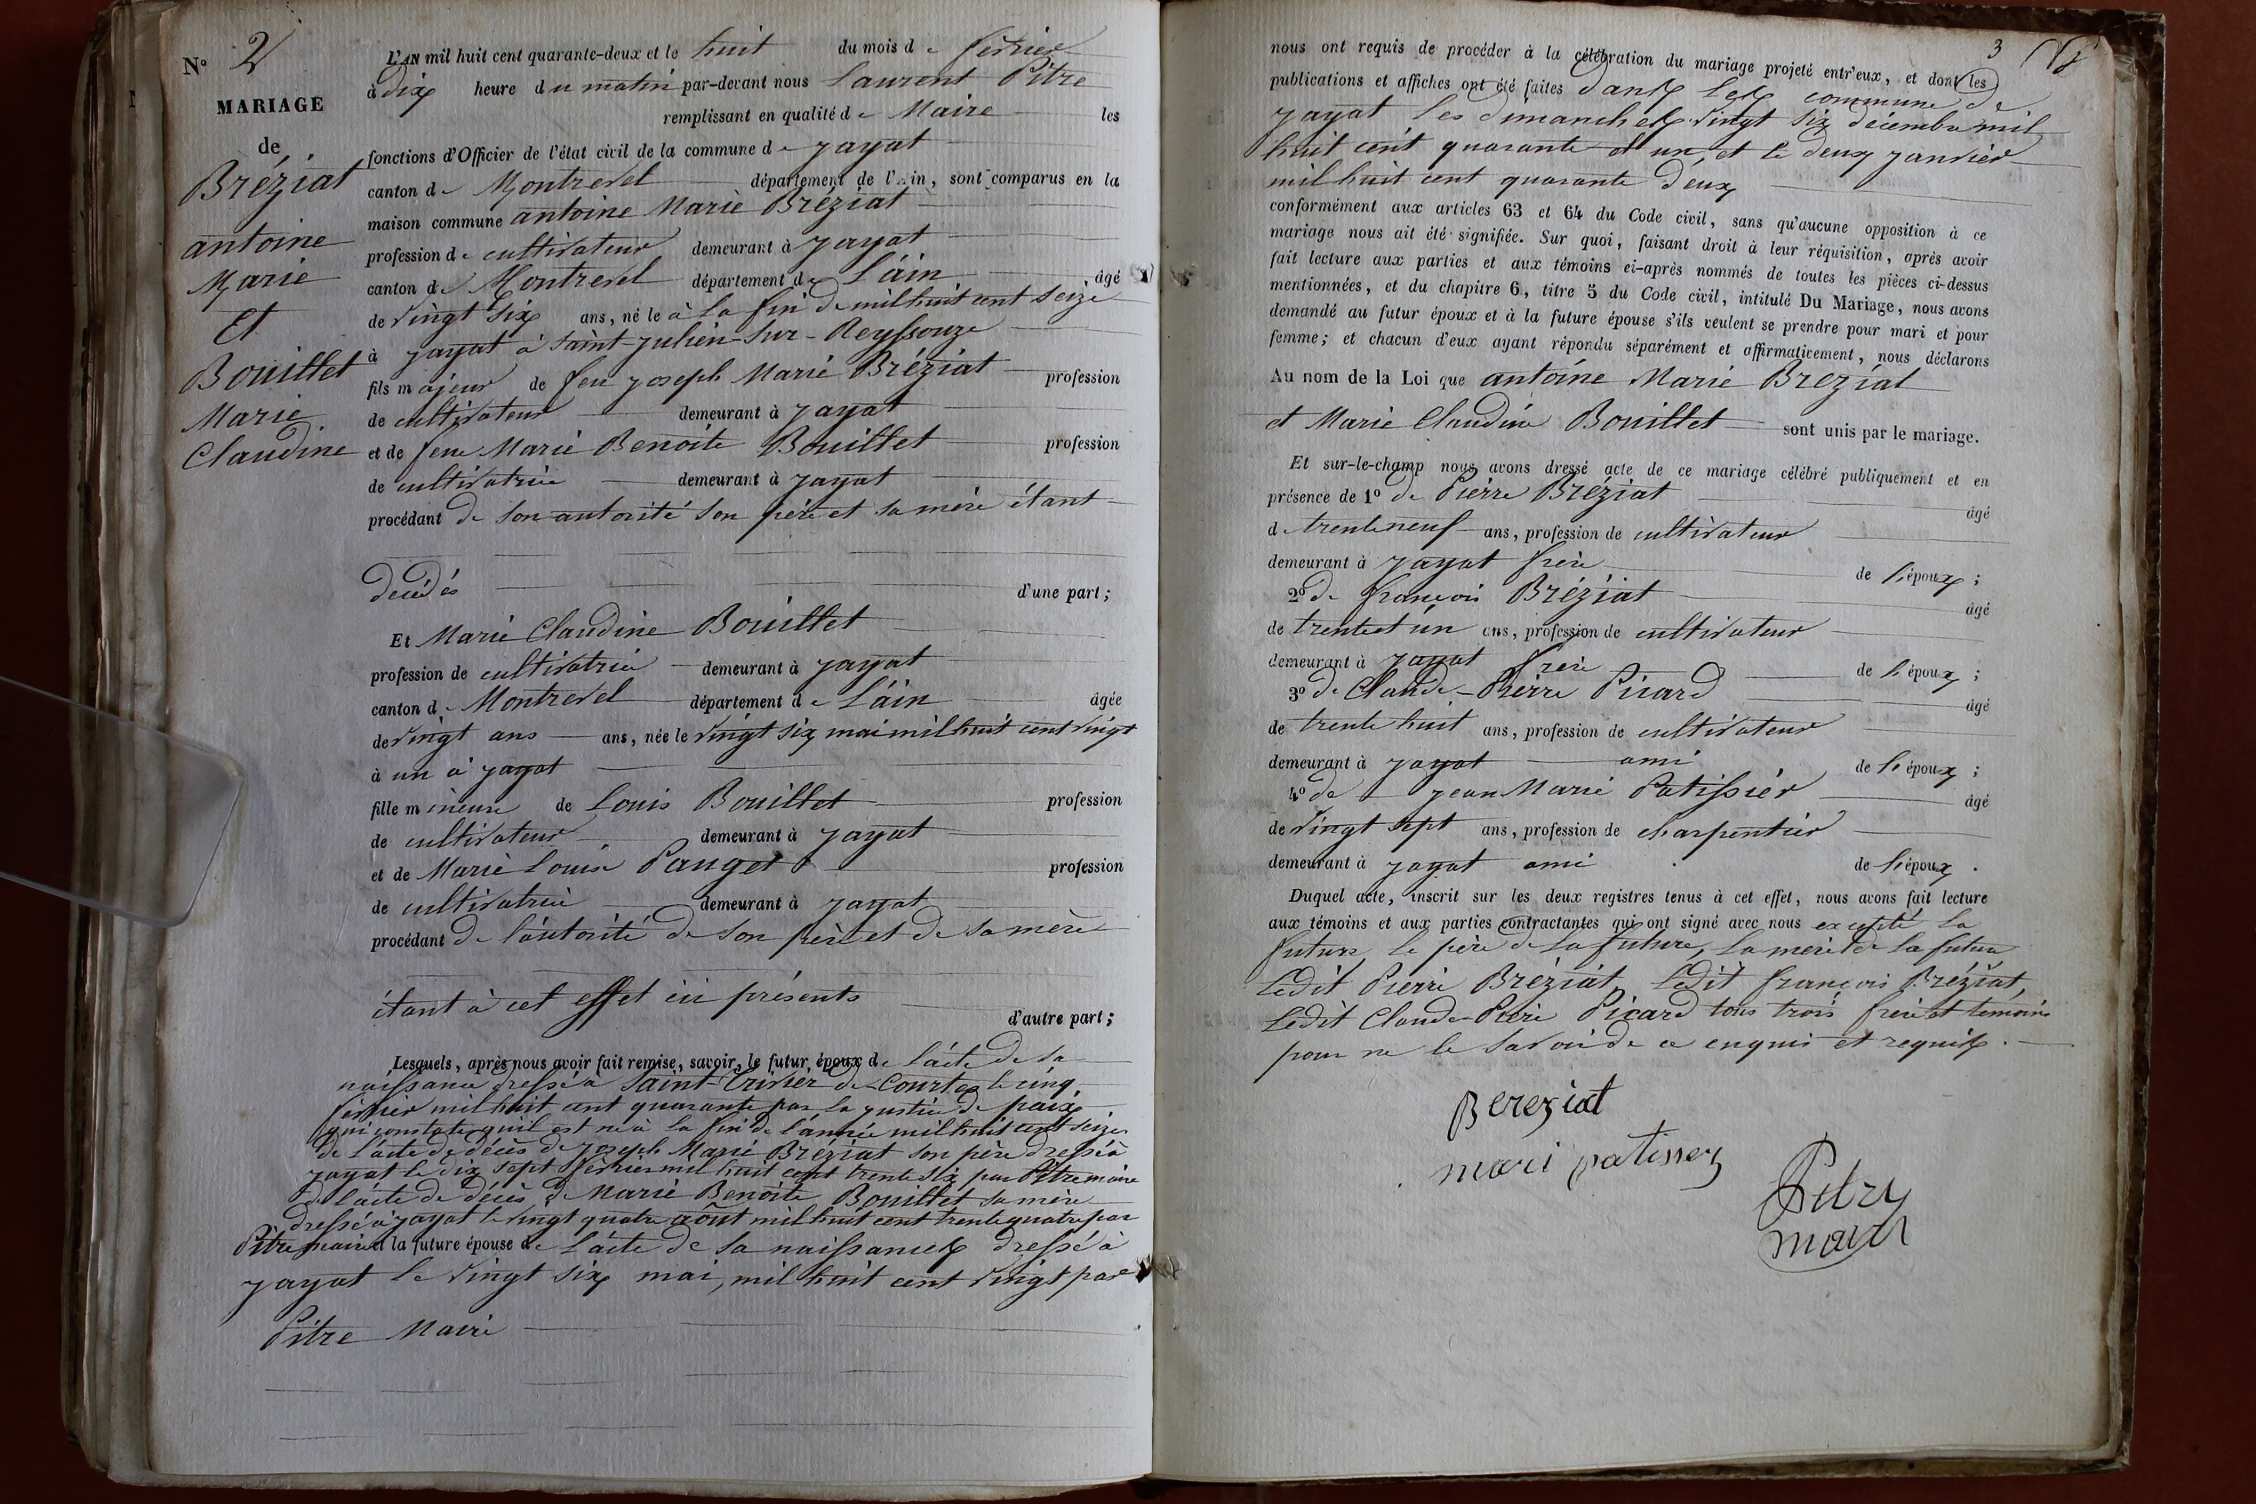 N° 2
MARIAGE
de
Bréziat
antoine
Marie
Et
Bouillet
Marie
Claudine
L'AN mil huit cent quarante-deux et le huit du mois de février
à dix heure du matin par-devant nous Laurent Pitre
remplissant en qualité de Maire les
fonctions d'Officier de l'état civil de la commune de jayat
canton de Montrevel département de l'Ain, sont comparus en la
maison commune antoine Marie Bréziat
profession de cultivateur demeurant à jayat
canton de Montrevel département de L'áin âgé
de vingt six ans, né le à la fin de mil huit cent seize
à jayat à saint-julien-sur-Reyssouze
fils majeur de feu joseph Marie Bréziat profession
de cultivateur demeurant à jayat
et de feue Marie Benoite Bouillet profession
de cultivatrice demeurant à jayat
procédant de son autorité son père et sa mère étant
décédés d'une part;
Et Marie Claudine Bouillet
profession de cultivatrice demeurant à jayat
canton de Montrevel département de L'áin âgée
de vingt ans ans, née le vingt six mai mil huit cent vingt
à un à jayat
fille mineure de Louis Bouillet profession
de cultivateur demeurant à jayat
et de Marie Louise Pauget profession
de cultivatrice demeurant à jayat
procédant de l'autorité de son père et de sa mère
étant à cet effet ici présents
d'autre part;
Lesquels, après nous avoir fait remise, savoir, le futur époux de l'acte de sa
naissance dressé à Saint-Trivier-de-Courtes le cinq
février mil huit cent quarante par la justice de paix
qui constate qu'il est né à la fin de l'année mil huit cent seize
de l'acte de décès de joseph Marie Bréziat son père dressé à
jayat le dix sept février mil huit cent trente six par Pitre maire
de l'acte de décès de Marie Benoite Bouillet sa mère
dressé à jayat le vingt quatre août mil huit cent trente quatre par
Pitre maire et la future épouse de l'acte de sa naissance dressé à
jayat le vingt six mai, mil huit cent vingt par
Pitre Maire
3
nous ont requis de procéder à la célébration du mariage projeté entr'eux, et dont les
publications et affiches ont été faites dans les commune de
jayat les dimanches vingt six décembre mil
huit cent quarante et un, et le deux janvier
mil huit cent quarante deux
conformément aux articles 63 et 64 du Code civil, sans qu'aucune opposition à ce
mariage nous ait été signifiée. Sur quoi, faisant droit à leur réquisition, après avoir
fait lecture aux parties et aux témoins ci-après nommés de toutes les pièces ci-dessus
mentionnées, et du chapitre 6, titre 5 du Code civil, intitulé Du Mariage, nous avons
demandé au futur époux et à la future épouse s'ils veulent se prendre pour mari et pour
femme; et chacun d'eux ayant répondu séparément et affirmativement, nous déclarons
Au nom de la Loi que antoine Marie Breziat
et Marie Claudine Bouillet sont unis par le mariage.
Et sur-le-champ nous avons dressé acte de ce mariage célébré publiquement et en
présence de 1° de Pierre Bréziat âgé
de trente neuf ans, profession de cultivateur
demeurant à jayat frère de l'époux;
2° de françois Bréziat âgé
de trente et un ans, profession de cultivateur
demeurant à jayat frere de l'époux;
3° de Claude-Pierre Picard âgé
de trente huit ans, profession de cultivateur
demeurant à jayat ami de l'époux;
4° de jean Marie Patissier âgé
de vingt sept ans, profession de charpentier
demeurant à jayat ami de l'époux.
Duquel acte, inscrit sur les deux registres tenus à cet effet, nous avons fait lecture
aux témoins et aux parties contractantes qui ont signé avec nous excepté la
future, le père de la future, la mère de la future
Ledit Pierre Bréziat, Ledit françois Bréziat,
Ledit Claude-Pierre Picard tous trois frère et témoins
pour ne le savoir de ce enquis et requis.
Bereziat
mari patisser
Pitre
maire